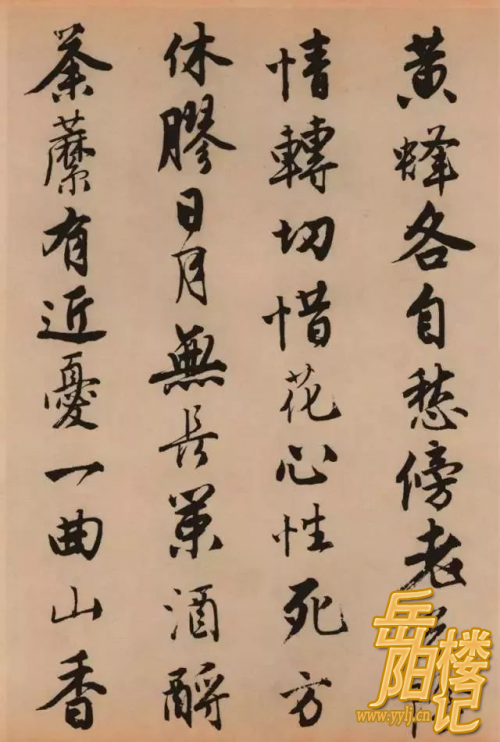 黃蜂各自愁傍老
情轉切惜花心性死方
休膠日月無長策酒酹
荼䕷有近憂一曲山香
岳阳楼记
www.yylj.cn